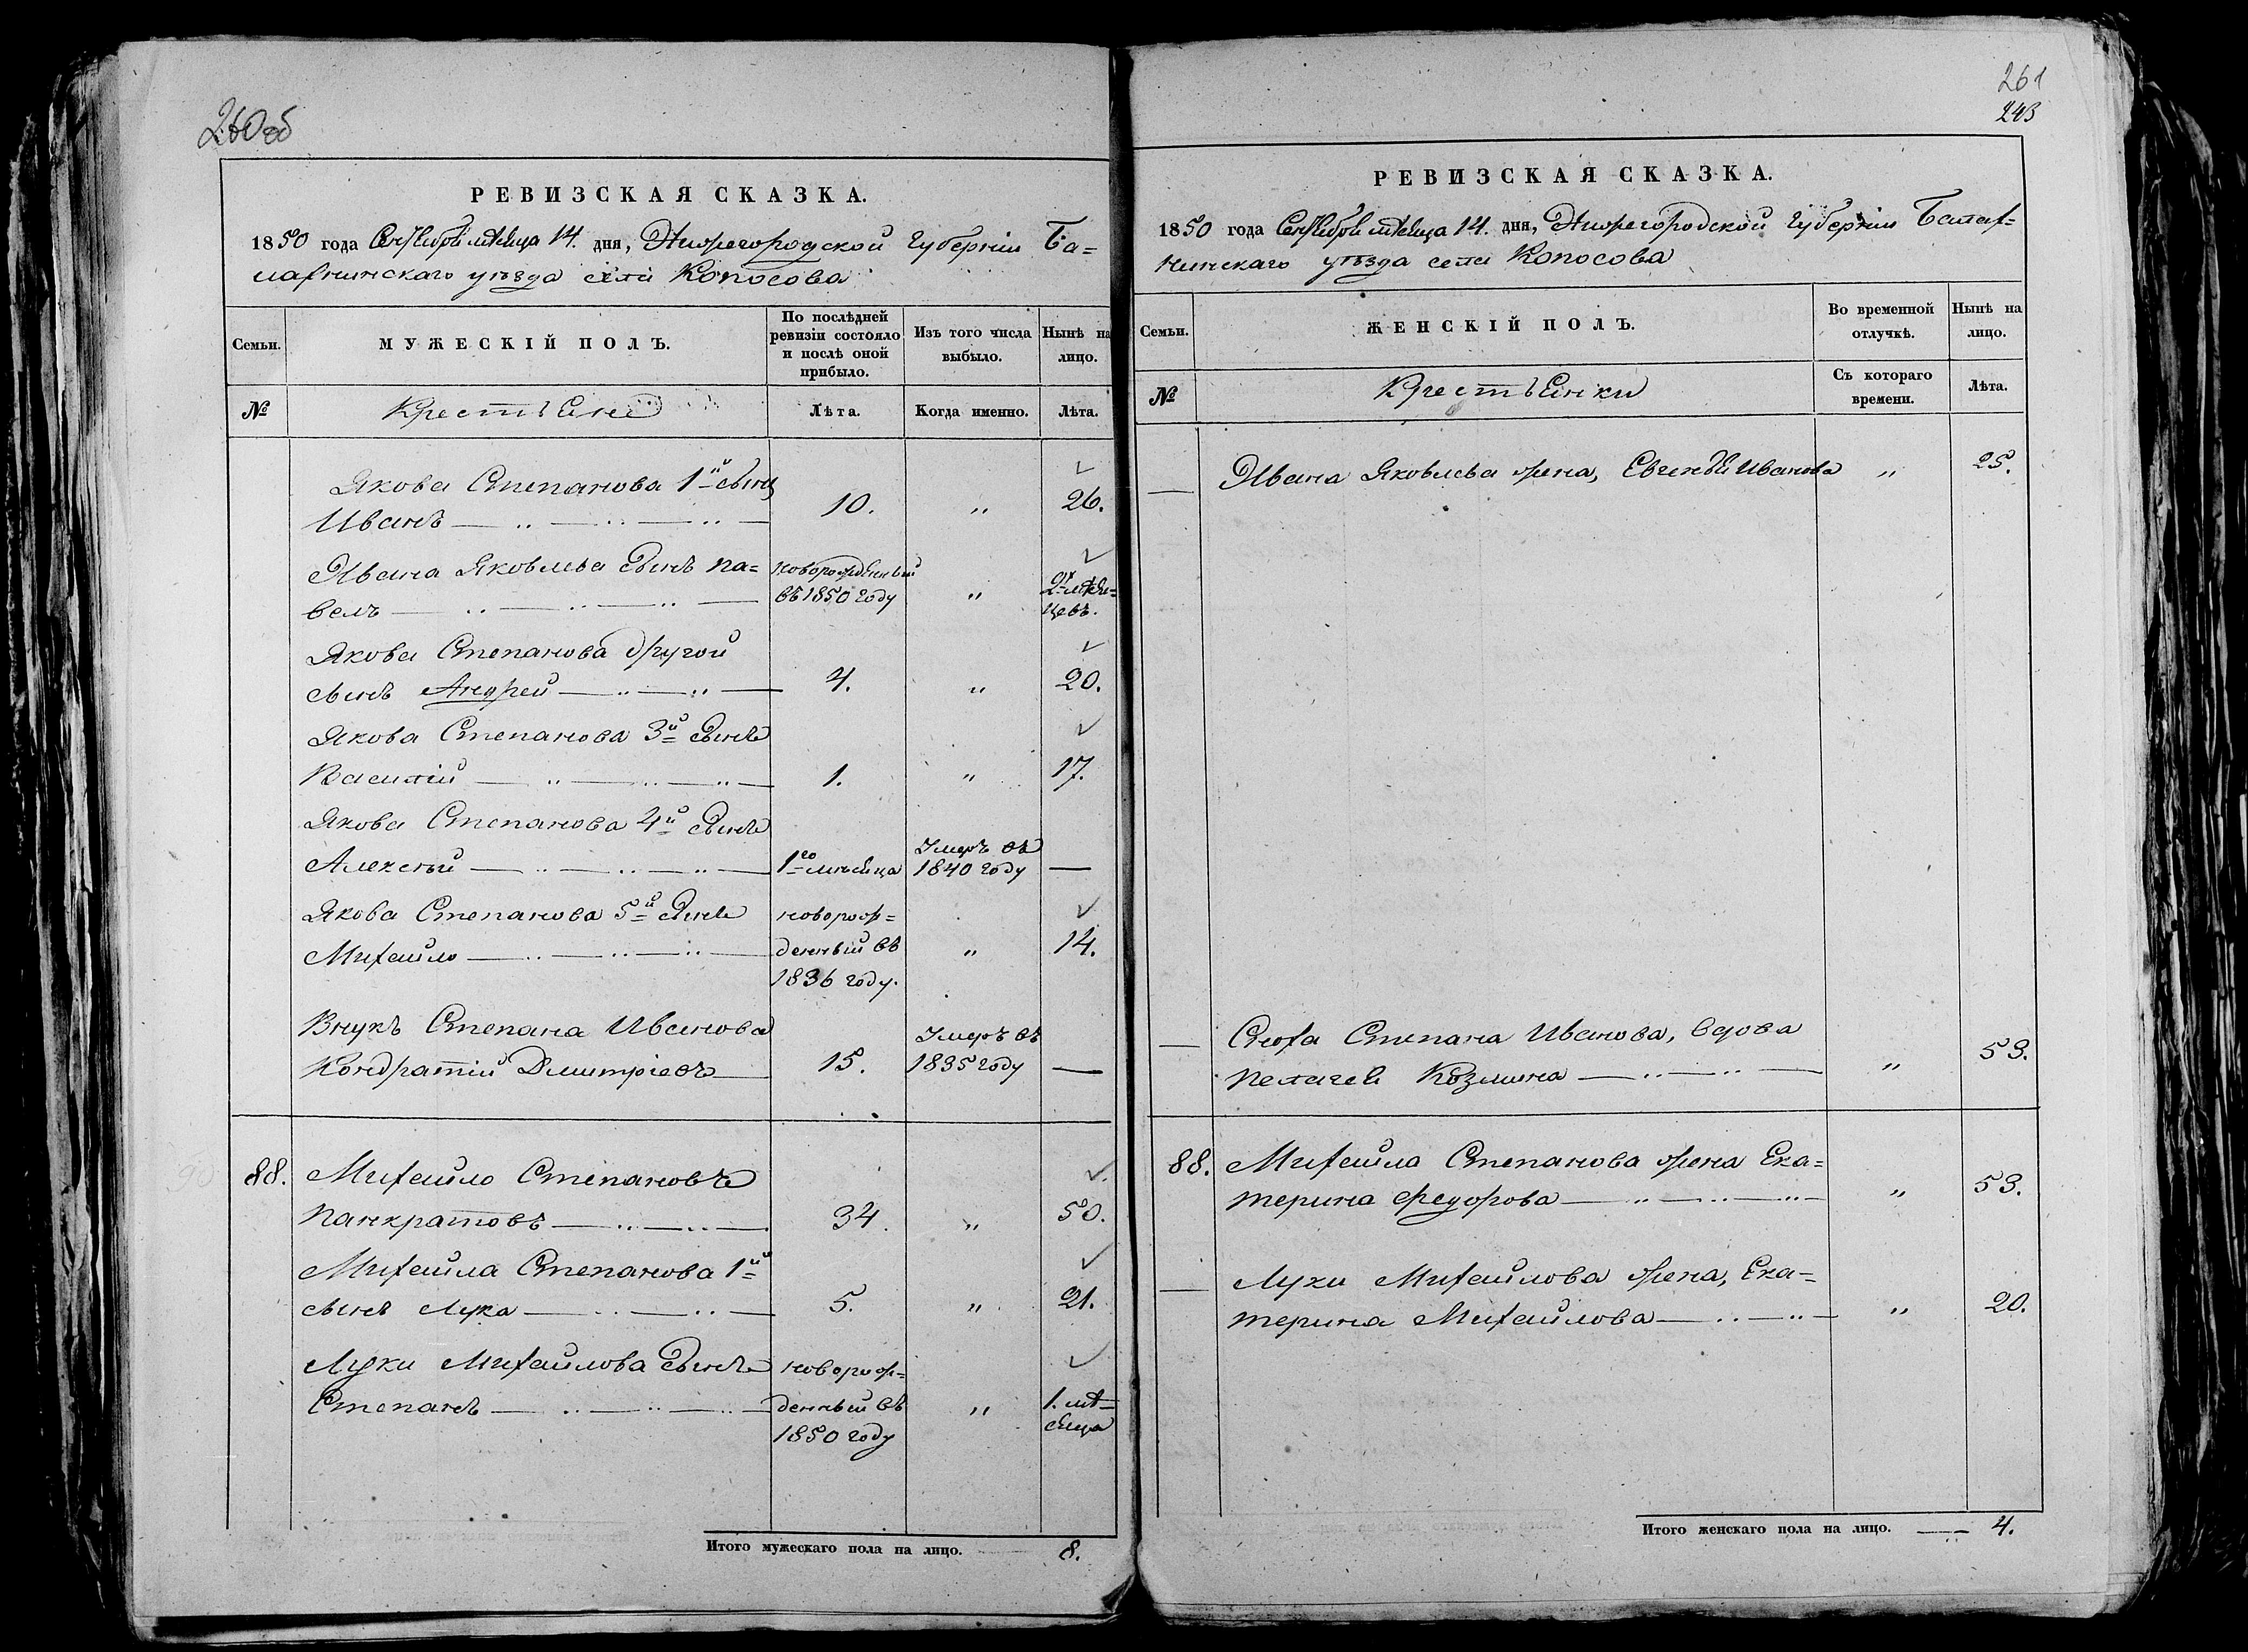 260об
РЕВИЗСКАЯ СКАЗКА.
1850 года Сентября мѣсяца 14. дня, Нижегородской Губерніи Ба=
лахнинскаго уѣзда села Копосова
Семьи.
МУЖЕСКІЙ ПОЛЪ.
По послѣдней
ревизіи состояло
и послѣ оной
прибыло.
Изъ того числа
выбыло.
Нынѣ на
лицо.
№
Крестьяне
Лѣта.
Когда именно.
Лѣта.
Якова Степанова 1й сынъ
Иванъ 10. " 26.
Ивана Яковлева сынъ Па= новорожденный 2х мѣся=
велъ въ 1850 году " цевъ.
Якова Степанова другой
сынъ Андрей 4. " 20.
Якова Степанова 3й сынъ
Василій 1. " 17.
Якова Степанова 4й сынъ Умеръ въ
Алексѣй 1го мѣсяца 1840 году —
Якова Степанова 5й сынъ новорож=
Михайло денный въ " 14.
1836 году.
Внукъ Степана Иванова Умеръ въ
Кондратій Дмитріевъ 15. 1835 году —
88. Михайло Степановъ
Панкратовъ 34. " 50.
Михайла Степанова 1й
сынъ Лука 5. " 21.
Луки Михайлова сынъ новорож=
Степанъ денный въ " 1. мѣ=
1850 году сяца
Итого мужескаго пола на лицо. 8.
261
243
РЕВИЗСКАЯ СКАЗКА.
1850 года Сентября мѣсяца 14. дня, Нижегородской Губерніи Балах=
нинскаго уѣзда села Копосова
Семьи.
ЖЕНСКІЙ ПОЛЪ.
Во временной
отлучкѣ.
Нынѣ на
лицо.
№
Крестьянки
Съ котораго
времени.
Лѣта.
— Ивана Яковлева жена, Евгенья Иванова " 25.
— Сноха Степана Иванова, вдова
Пелагея Козмина " 53.
88. Михайла Степанова жена Ека=
терина Федорова " 53.
— Луки Михайлова жена, Ека=
терина Михайлова " 20.
Итого женскаго пола на лицо. — 4.